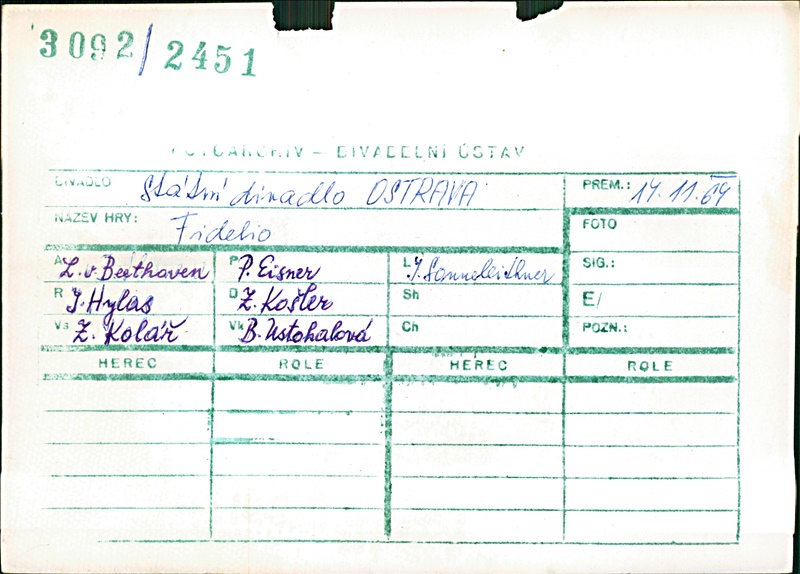 3092/2451
FOTOARCHIV – DIVADELNÍ ÚSTAV
DIVADLO Státní divadlo OSTRAVA PREM.: 14.11.64
NÁZEV HRY: Fidelio FOTO
A L. v. Beethoven P P. Eisner L J. Sonnoleithner SIG.:
R J. Hylas D Z. Košler Sh E/
Vs Z. Kolář Vk B. Ustohalová Ch POZN.:
HEREC ROLE HEREC ROLE